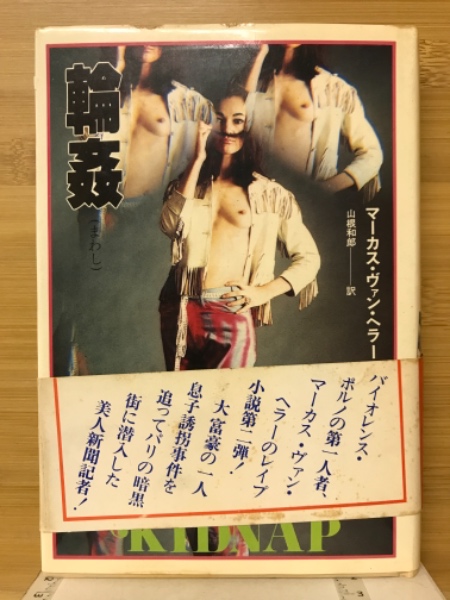 輪姦
(まわし)
マーカス・ヴァン・ヘラー
山根和郎――訳
バイオレンス・
ポルノの第一人者、
マーカス・ヴァン・
ヘラーのレイプ
小説第二弾!
大富豪の一人
息子誘拐事件を
追ってパリの暗黒
街に潜入した
美人新聞記者!
KIDNAP